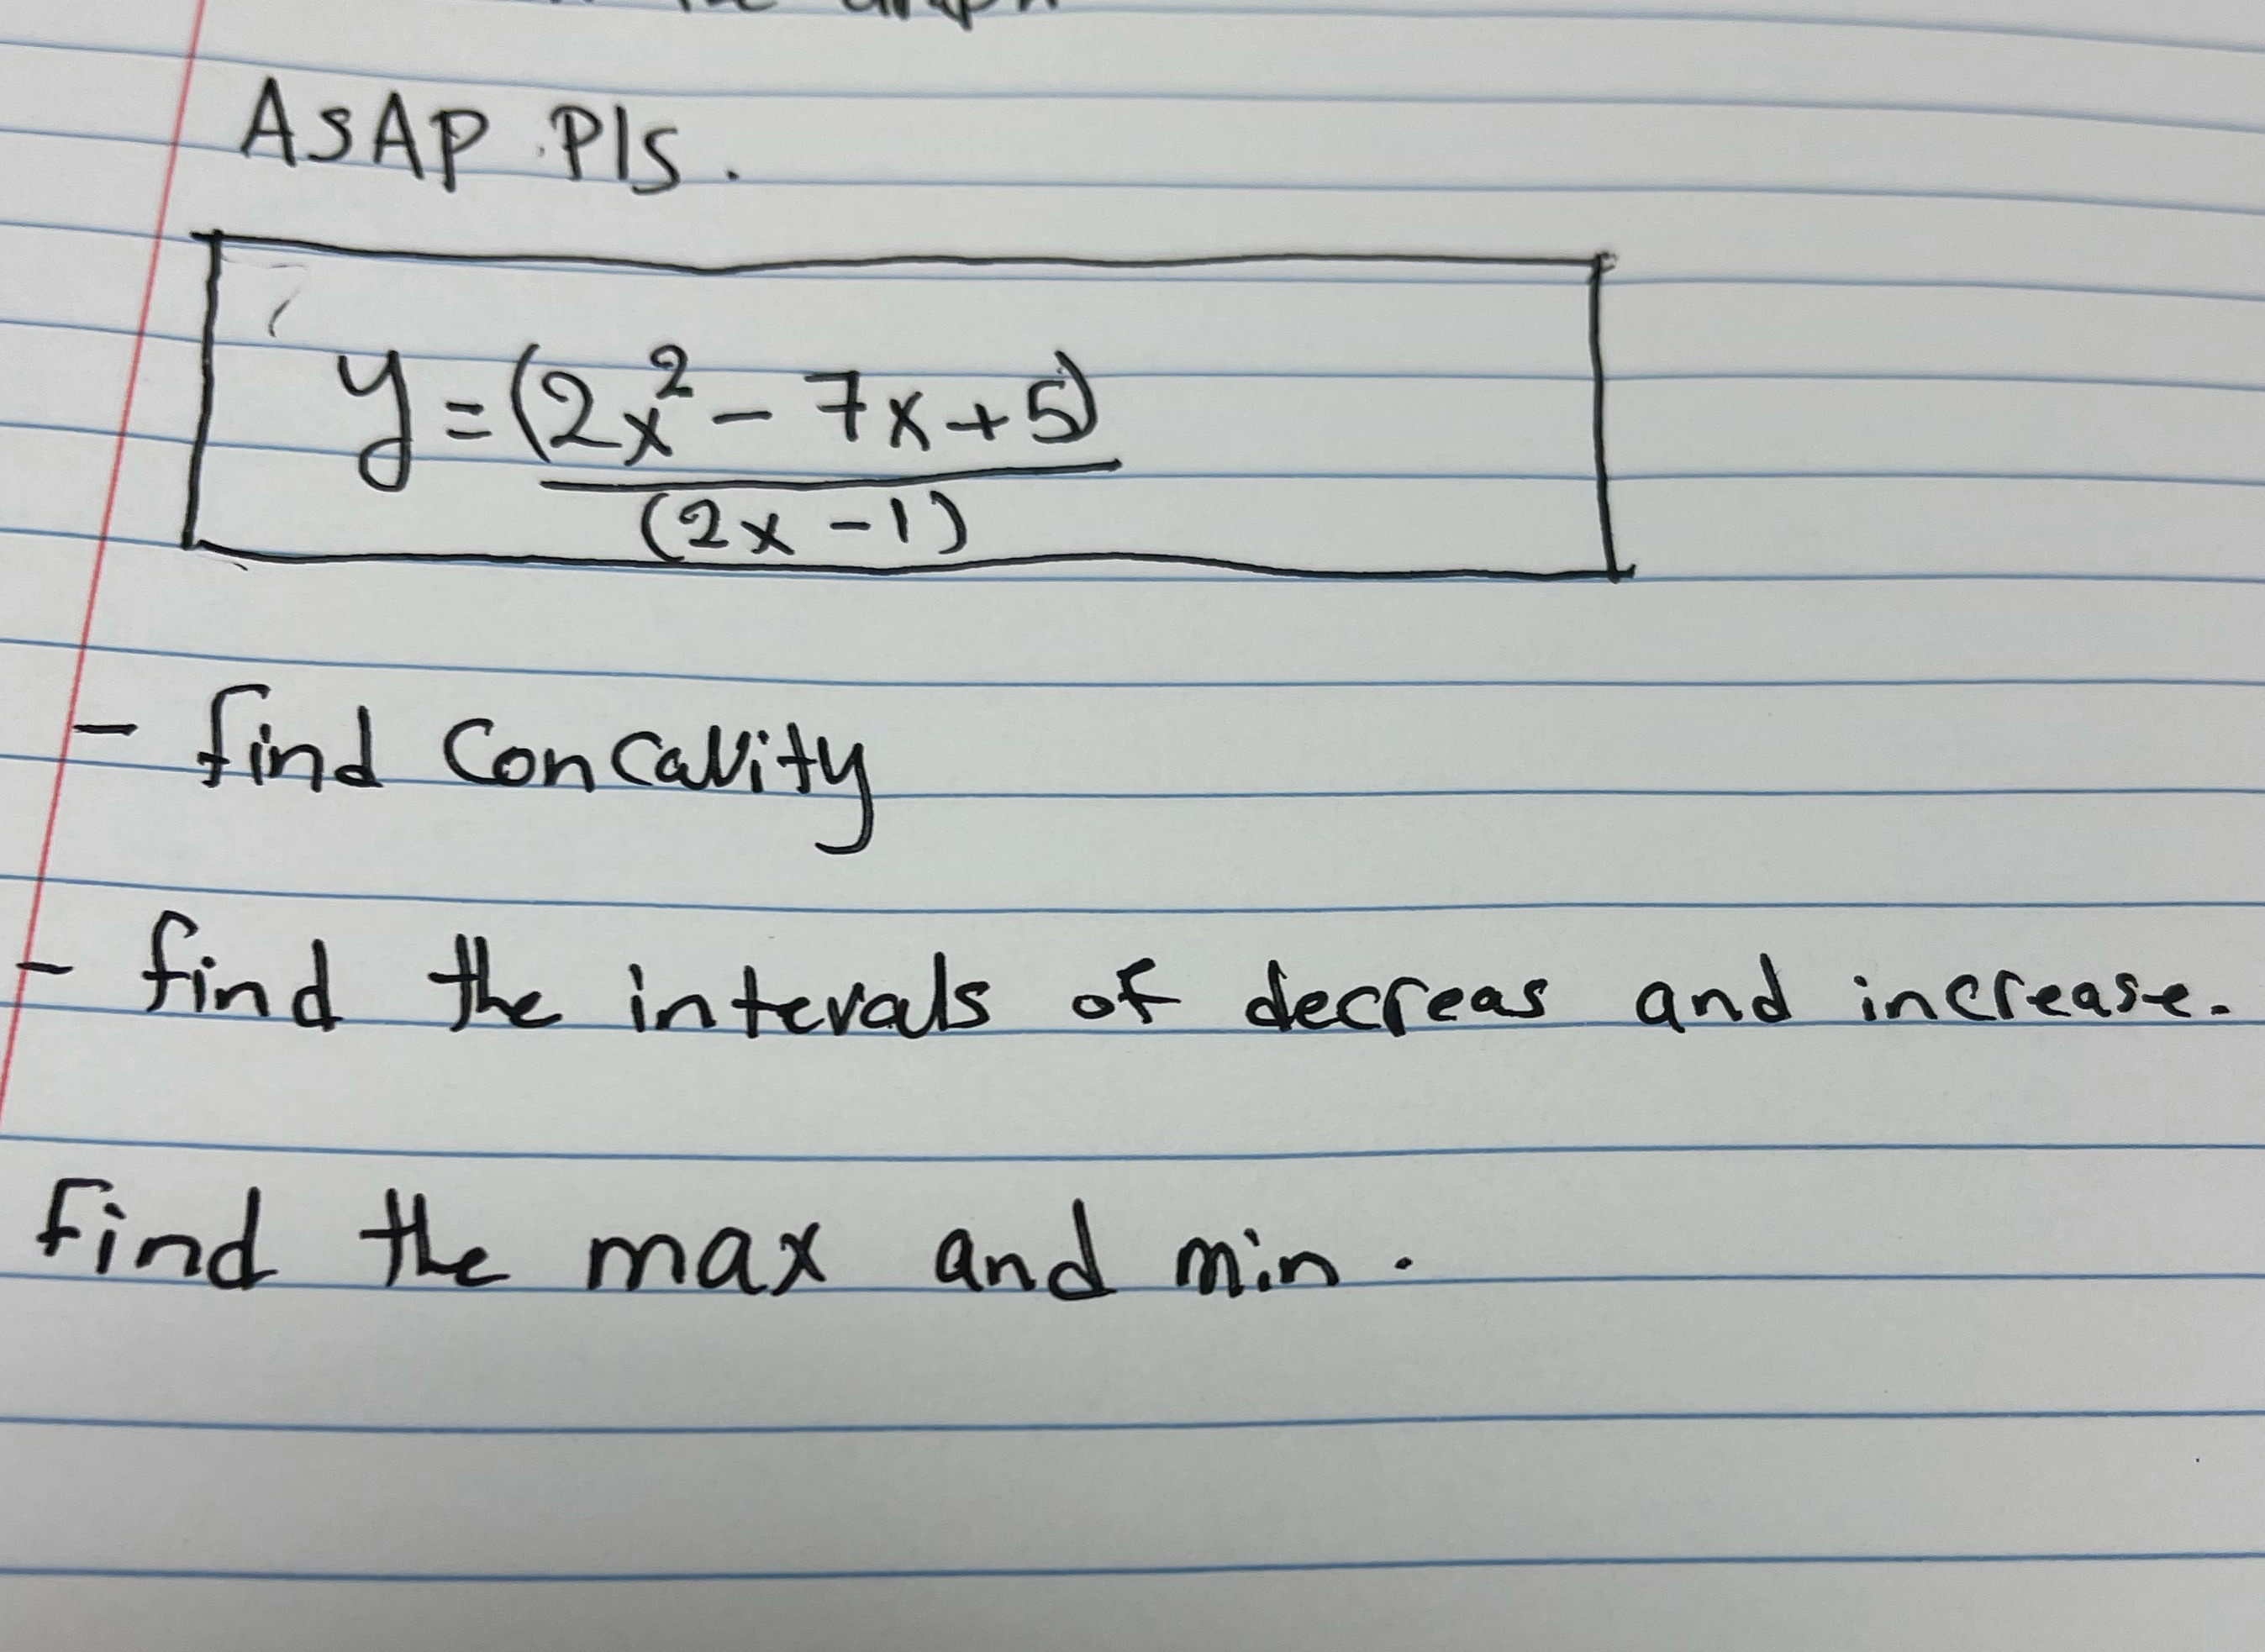 Graph
ASAP Pls.
y = (2x² - 7x + 5)
(2x - 1)
- find Concavity
- find the intervals of decreas and increase.
Find the max and min.